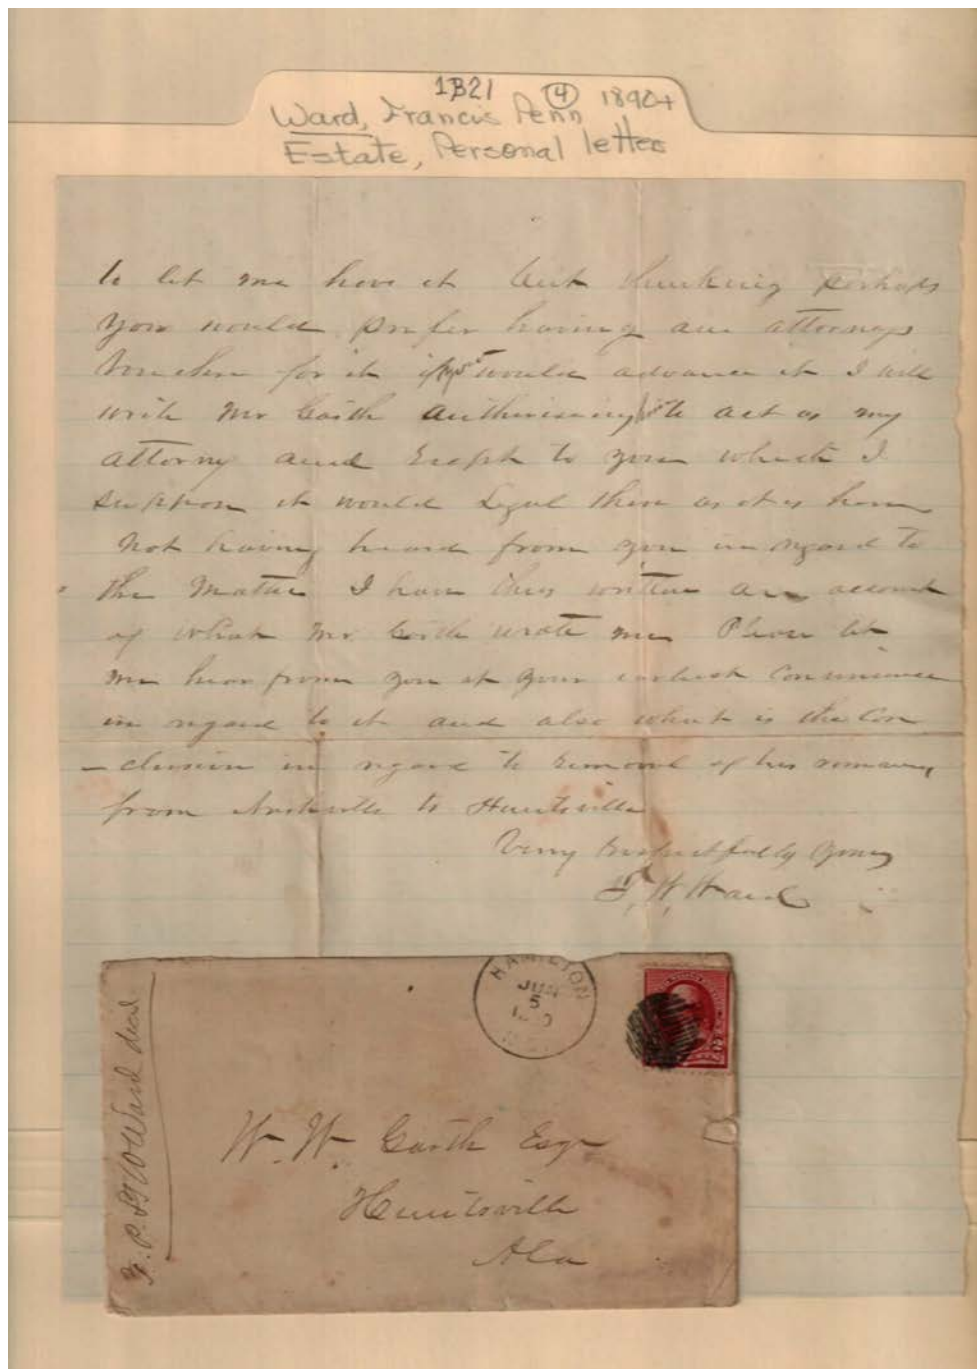 1B21 4 1890+
Ward, Francis Penn
Estate, Personal letter
to let me have it but thinking perhaps
you would prefer having an attorneys
voucher for it if you would advance it I will
write Mr Garth authorising to act as my
attorny and recpt to you which I
suppose it would legal there as it is here
Not having heard from you in regard to
the Matter I have thus written on account
of what Mr Garth wrote me Please let
me hear from you at your earliest convenience
in regard to it and also what is the Con
- clusion in regard to removal of his remains
from to Huntsville
Very Respectfully Yours
W. Ward
HAMILTON
JUN
5
W. W. Garth Esqr
Huntsville
Ala
F. P. Ward decd